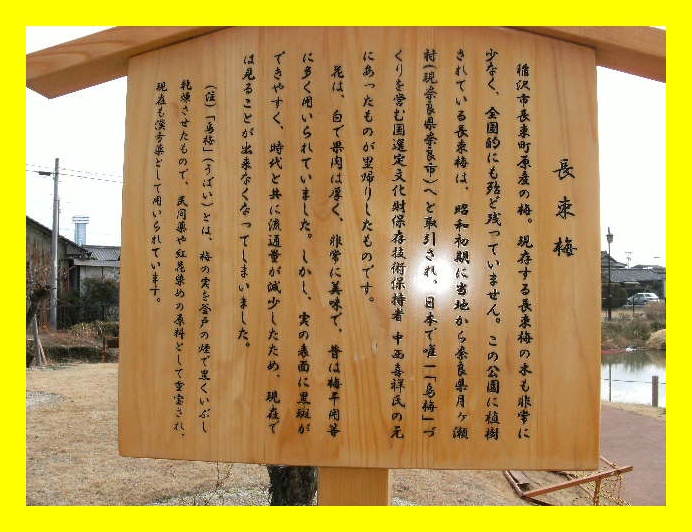 長束梅
稲沢市長束町原産の梅。現存する長束梅の木も非常に
少なく、全国的にも殆ど残っていません。この公園に植樹
されている長束梅は、昭和初期に当地から奈良県月ヶ瀬
村(現奈良県奈良市)へと取引され、日本で唯一「烏梅」づ
くりを営む国選定文化財保存技術保持者 中西喜祥氏の元
にあったものが里帰りしたものです。
花は、白で果肉は厚く、非常に美味で、昔は梅干用等
に多く用いられていました。しかし、実の表面に黒斑が
できやすく、時代と共に流通量が減少したため、現在で
は見ることが出来なくなってしまいました。
(注)「烏梅」(うばい)とは、梅の実を釜戸の煙で黒くいぶし
乾燥させたもので、民間薬や紅花染めの原料として重宝され、
現在も漢方薬として用いられています。